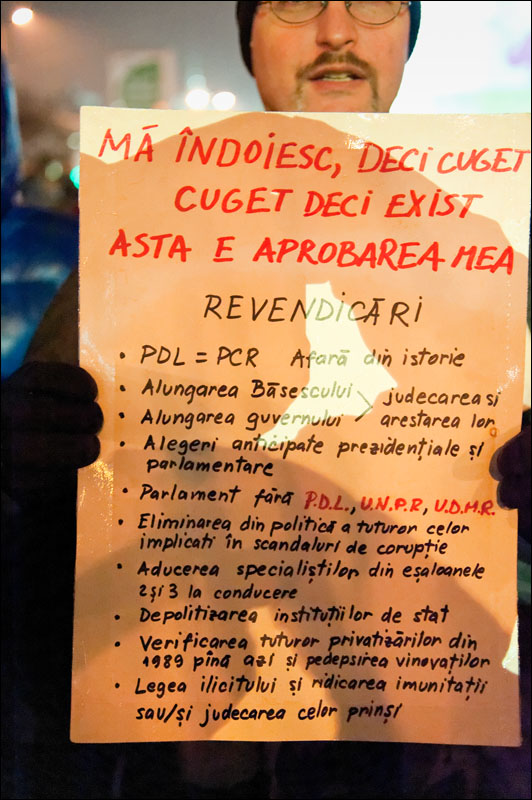 MĂ ÎNDOIESC, DECI CUGET
CUGET DECI EXIST
ASTA E APROBAREA MEA
REVENDICĂRI
• PDL = PCR Afară din istorie
• Alungarea Băsescului > judecarea și
• Alungarea guvernului arestarea lor
• Alegeri anticipate prezidențiale și
parlamentare
• Parlament fără P.D.L., U.N.P.R, U.D.M.R.
• Eliminarea din politică a tuturor celor
implicati în scandaluri de corupție
• Aducerea specialiștilor din eșaloanele
2 și 3 la conducere
• Depolitizarea instituțiilor de stat
• Verificarea tuturor privatizărilor din
1989 pînă azi și pedepsirea vinovaților
• Legea ilicitului și ridicarea imunitații
sau/și judecarea celor prinși